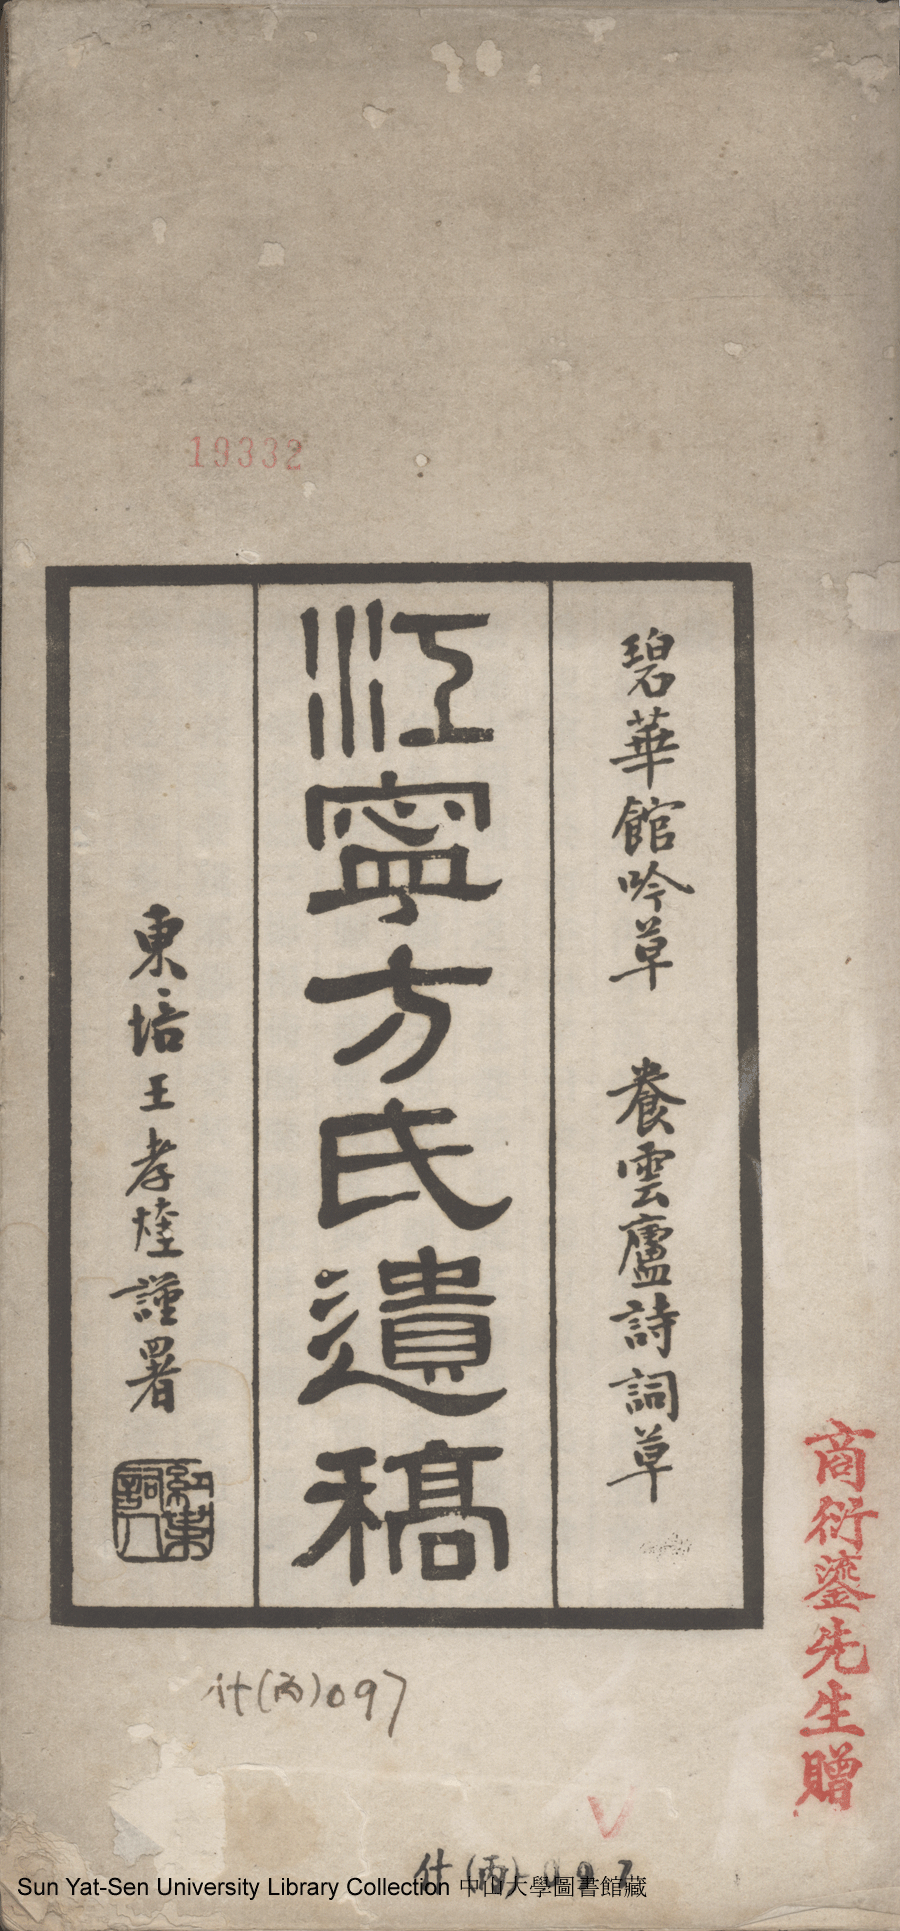 19332
碧華館吟草 養雲廬詩詞草
江寧方氏遺稿
東培王孝煃謹署
紅葉詞人
商衍鎏先生贈
什(丙)097
什(丙)097
Sun Yat-Sen University Library Collection 中山大學圖書館藏